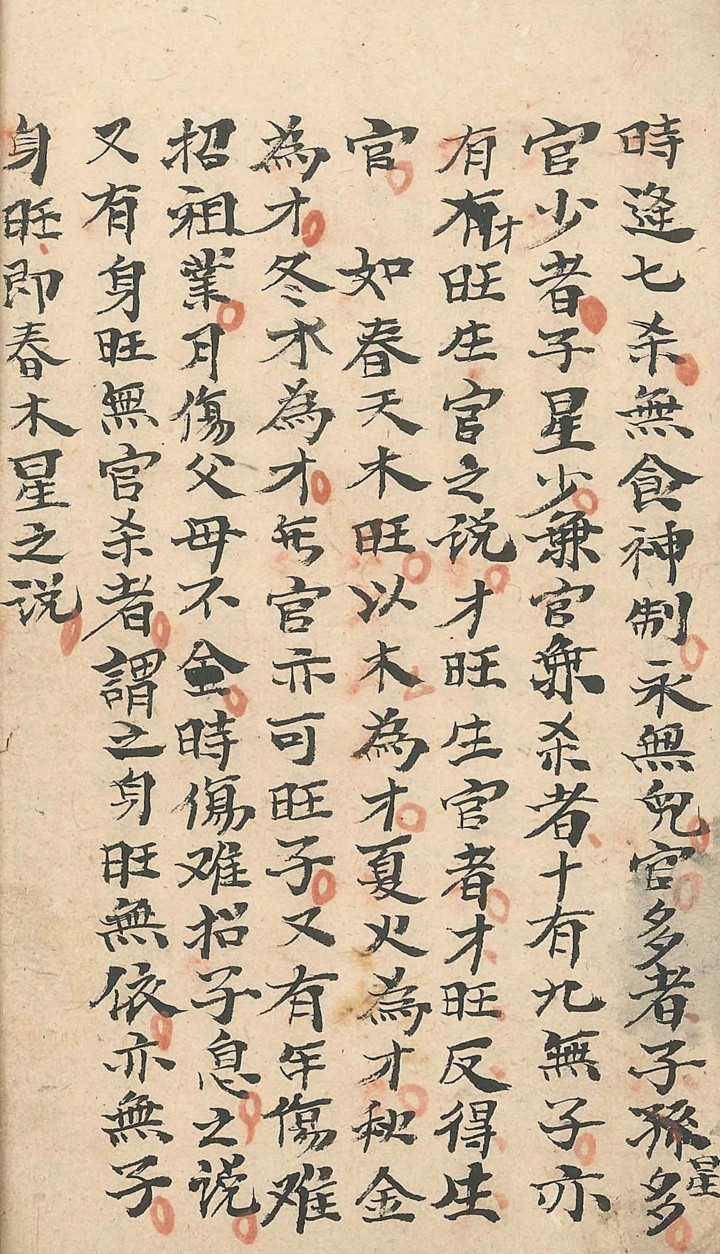 時逢七杀無食神制永無兒官多者子孫星多
官少者子星少兼官無杀者十有九無子亦
有有才旺生官之说才旺生官者才旺反得生
官　如春天木旺以木為才夏火為才秋金
為才冬水為才無官亦可旺子又有年傷难
招祖業月傷父母不全時傷难招子息之说
又有身旺無官杀者謂之身旺無依亦無子
身旺即春木星之说